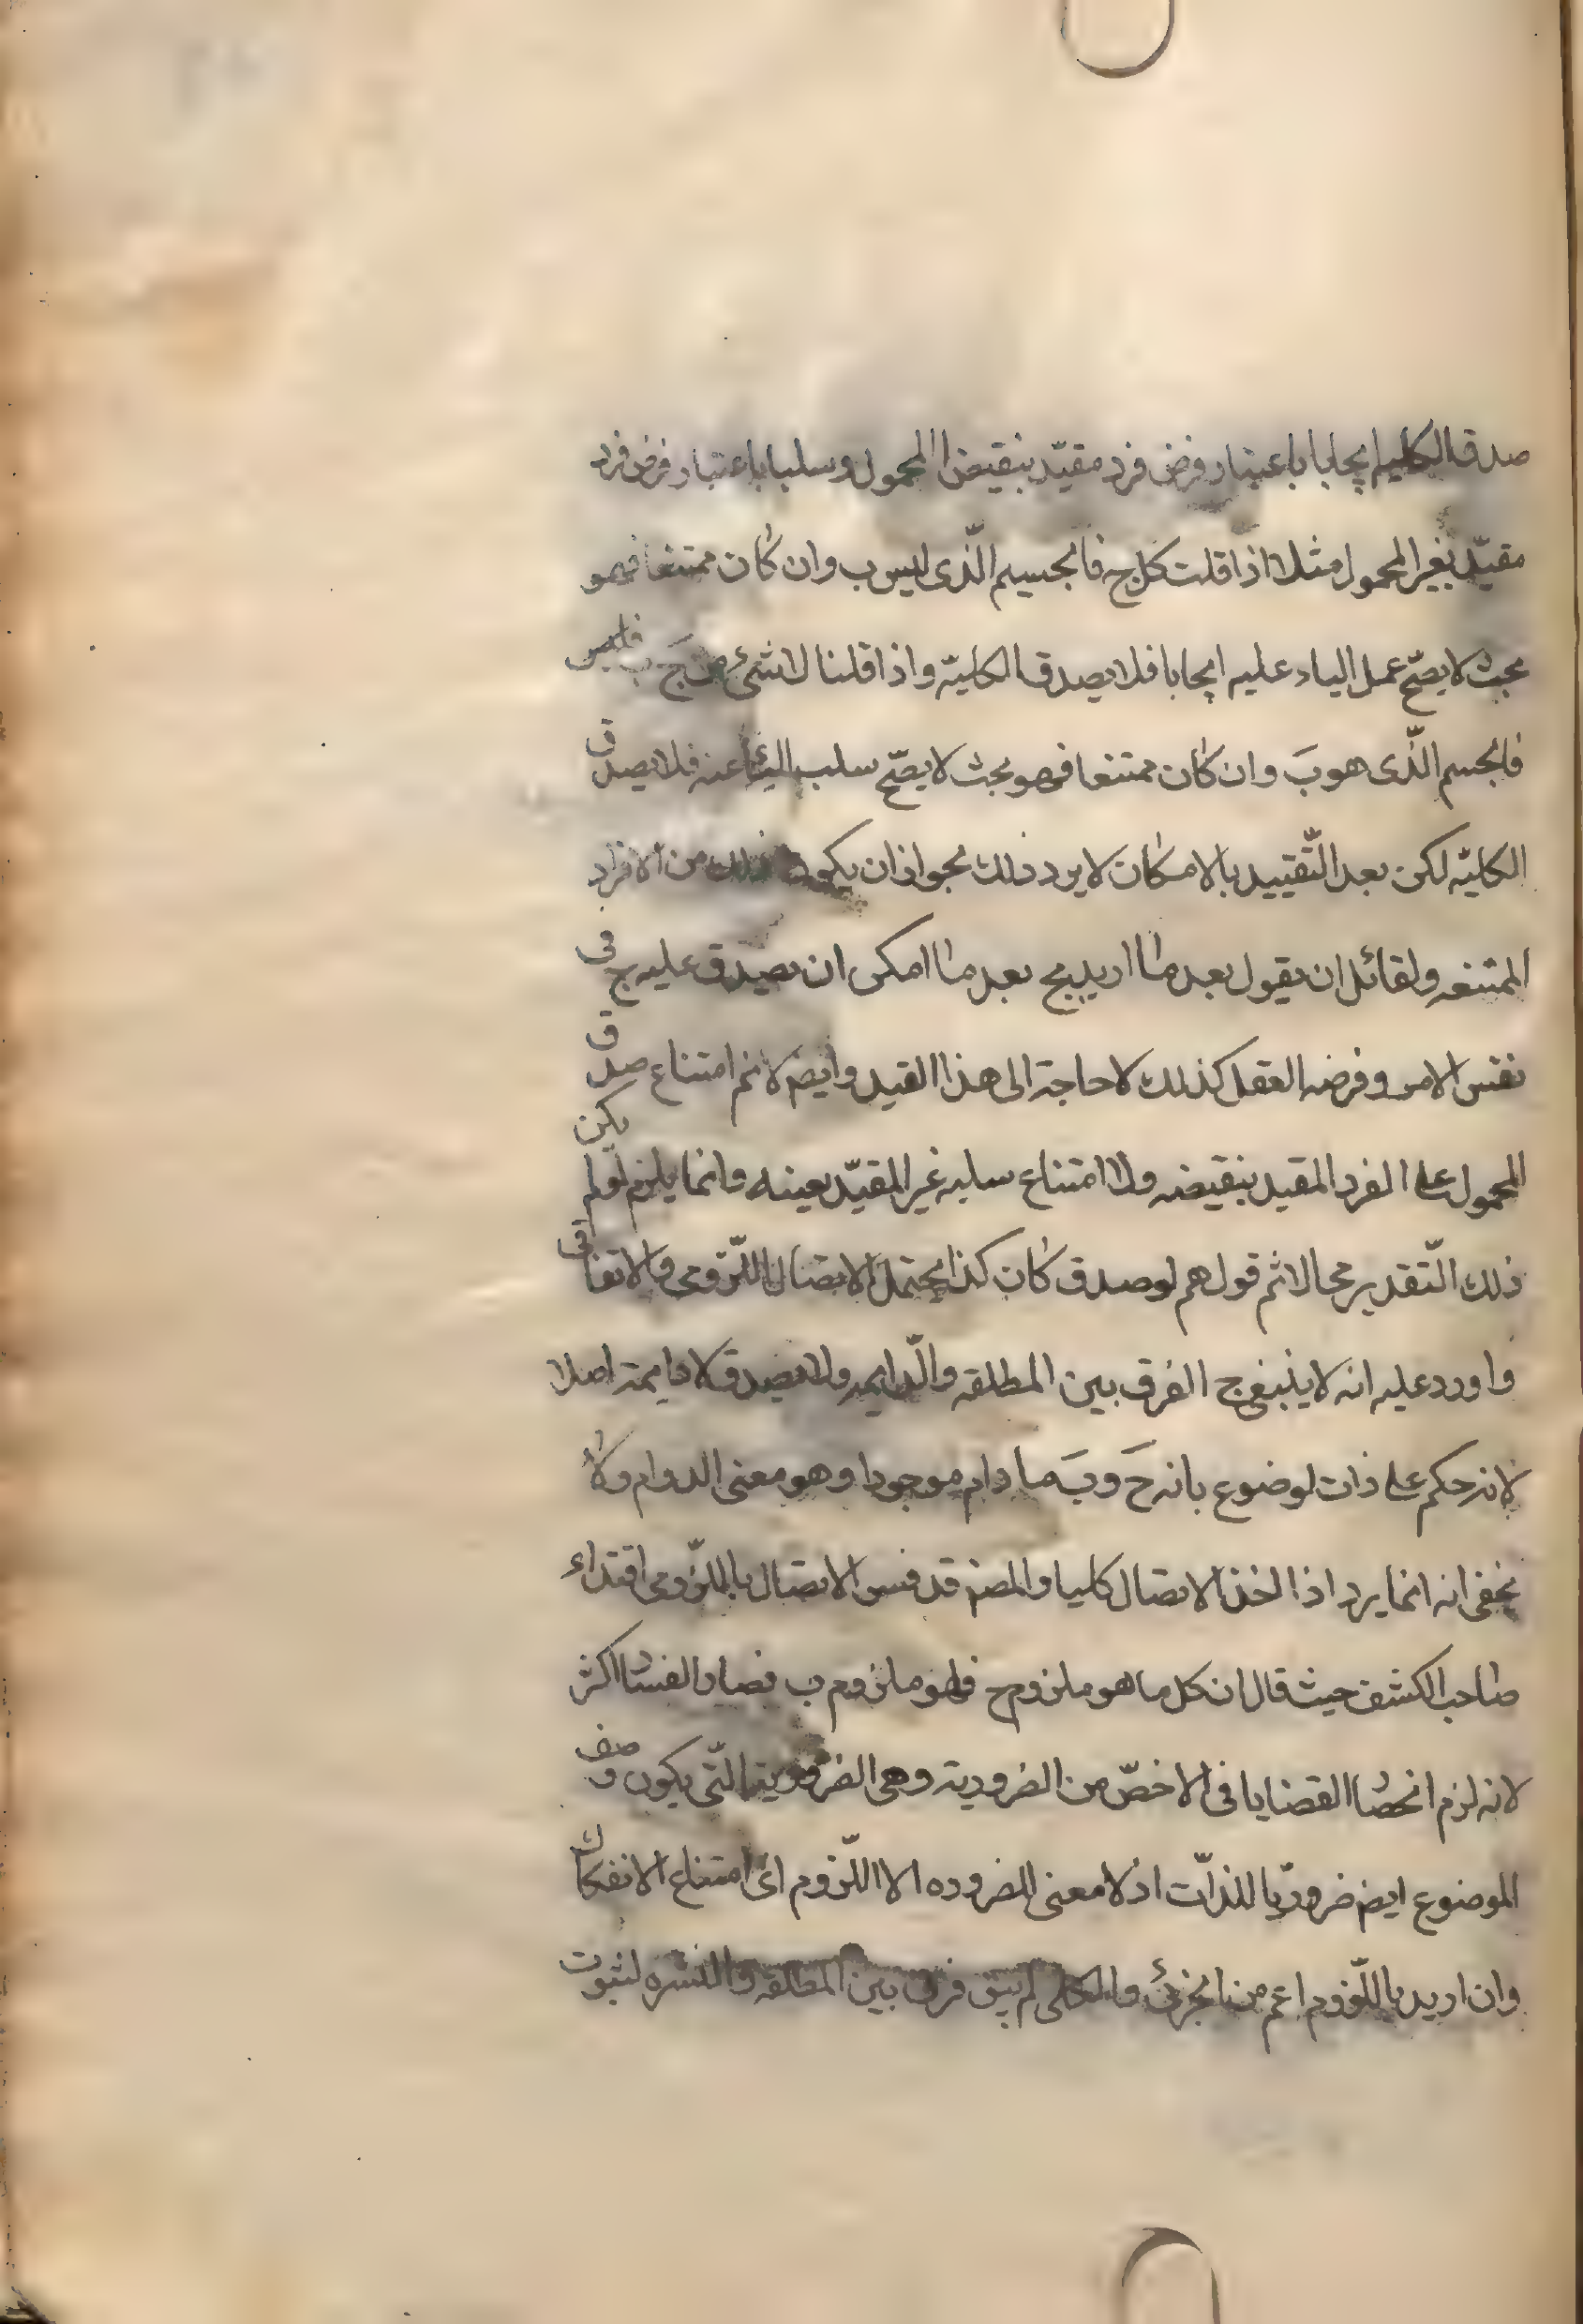 صدق الكلية ايجابا باعتبار فرض فرد مقيّد بنقيض المحمول وسلبا باعتبار فرض فرد
مقيّد بغير المحمول مثلا اذا قلت كل ج فالجسيم الّذى ليس ب وان كان ممتنعا فهو
بحيث لا يصحّ عمل الباء عليه ايجابا فلا يصدق الكليّة واذا قلنا لا شئ من ج ب فليس
فالجسم الّذى هو ب وان كان ممتنعا فهو بحيث لا يصحّ سلب الباء عنه فلا يصدق
الكليّه لكن بعد التّقييد بالامكان لا يرد ذلك لجواز ان يكون ذلك من الافراد
الممتنعه ولقائل ان يقول بعد ما اريد بج بعد ما امكن ان يصدق عليه ج فى
نفس الامر وفرضه العقل كذلك لا حاجة الى هذا القيد وايضا لانم امتناع صدق
المحمول على الفرد المقيد بنقيضه ولا امتناع سلبه غير المقيّد بعينه وانما يلزم لو لم يكن
ذلك التّقدير محالا ثم قولهم لو صدق كان كذا يحتمل الاتصال اللّزومى والاتفاقى
واورد عليه انه لا ينبغى ج الفرق بين المطلقه والّدايمه ولا يصدق لا دايمة اصلا
لانه حكم على ذات لوضوع بانه ج وب ما دام موجودا وهو معنى الدوام ولا
يخفى انه انما يرد اذا اخذ الاتصال كليا والمص قد فسر الاتصال باللّزومى اقتداء
صاحب الكشف حيث قال ان كل ما هو ملزوم ج فهو ملزوم ب فصار الفساد اكثر
لانه لزم انحصار القضايا فى الاخصّ من الضروديه وهى الضرورية الّتى يكون وصف
الموضوع ايض ضروريّا للذاّت اذ لا معنى للضروده الا اللّزوم اى امتناع الانفكاك
وان اريد باللّزوم اعم من الجزئ والكلى لم يبق فرق بين المطلقه والنشره لثبوت